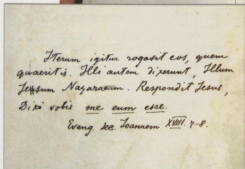 Iterum igitur rogavit eos, quem
quaeritis. Illi autem dixerunt, Illum
Jesum Nazaraeum. Respondit Jesus,
Dixi vobis me eum esse.
Evang sec Ioannem XVIII 7-8.